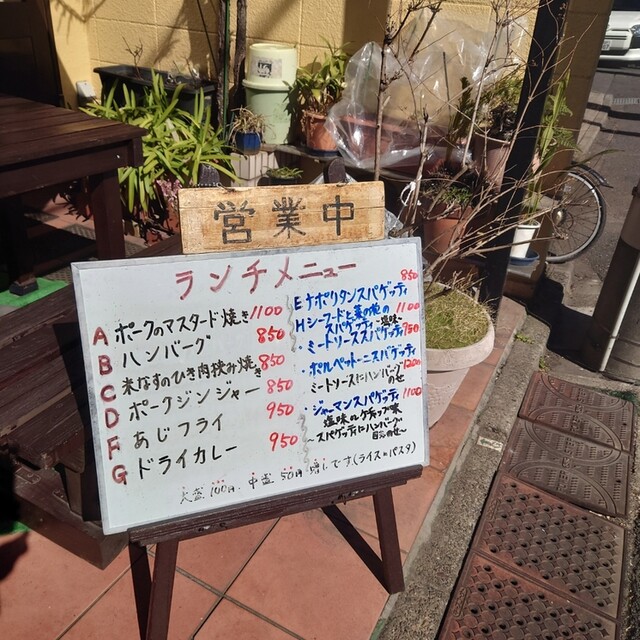 営業中
ランチメニュー
A ポークのマスタード焼き 1100
B ハンバーグ 850
C 米なすのひき肉挟み焼き 850
D ポークジンジャー 850
F あじフライ 950
G ドライカレー 950
E ナポリタンスパゲッティ 850
H シーフードと菜の花の 1100
スパゲッティ 塩味
・ミートソーススパゲッティ 950
・ポルペットーネスパゲッティ
ミートソースにハンバーグ 1200
のせ
・ジャーマンスパゲッティ 1100
塩味orケチャップ味
〜スパゲッティにハンバーグ
のせ〜
大盛100円、中盛50円増しです(ライスorパスタ)